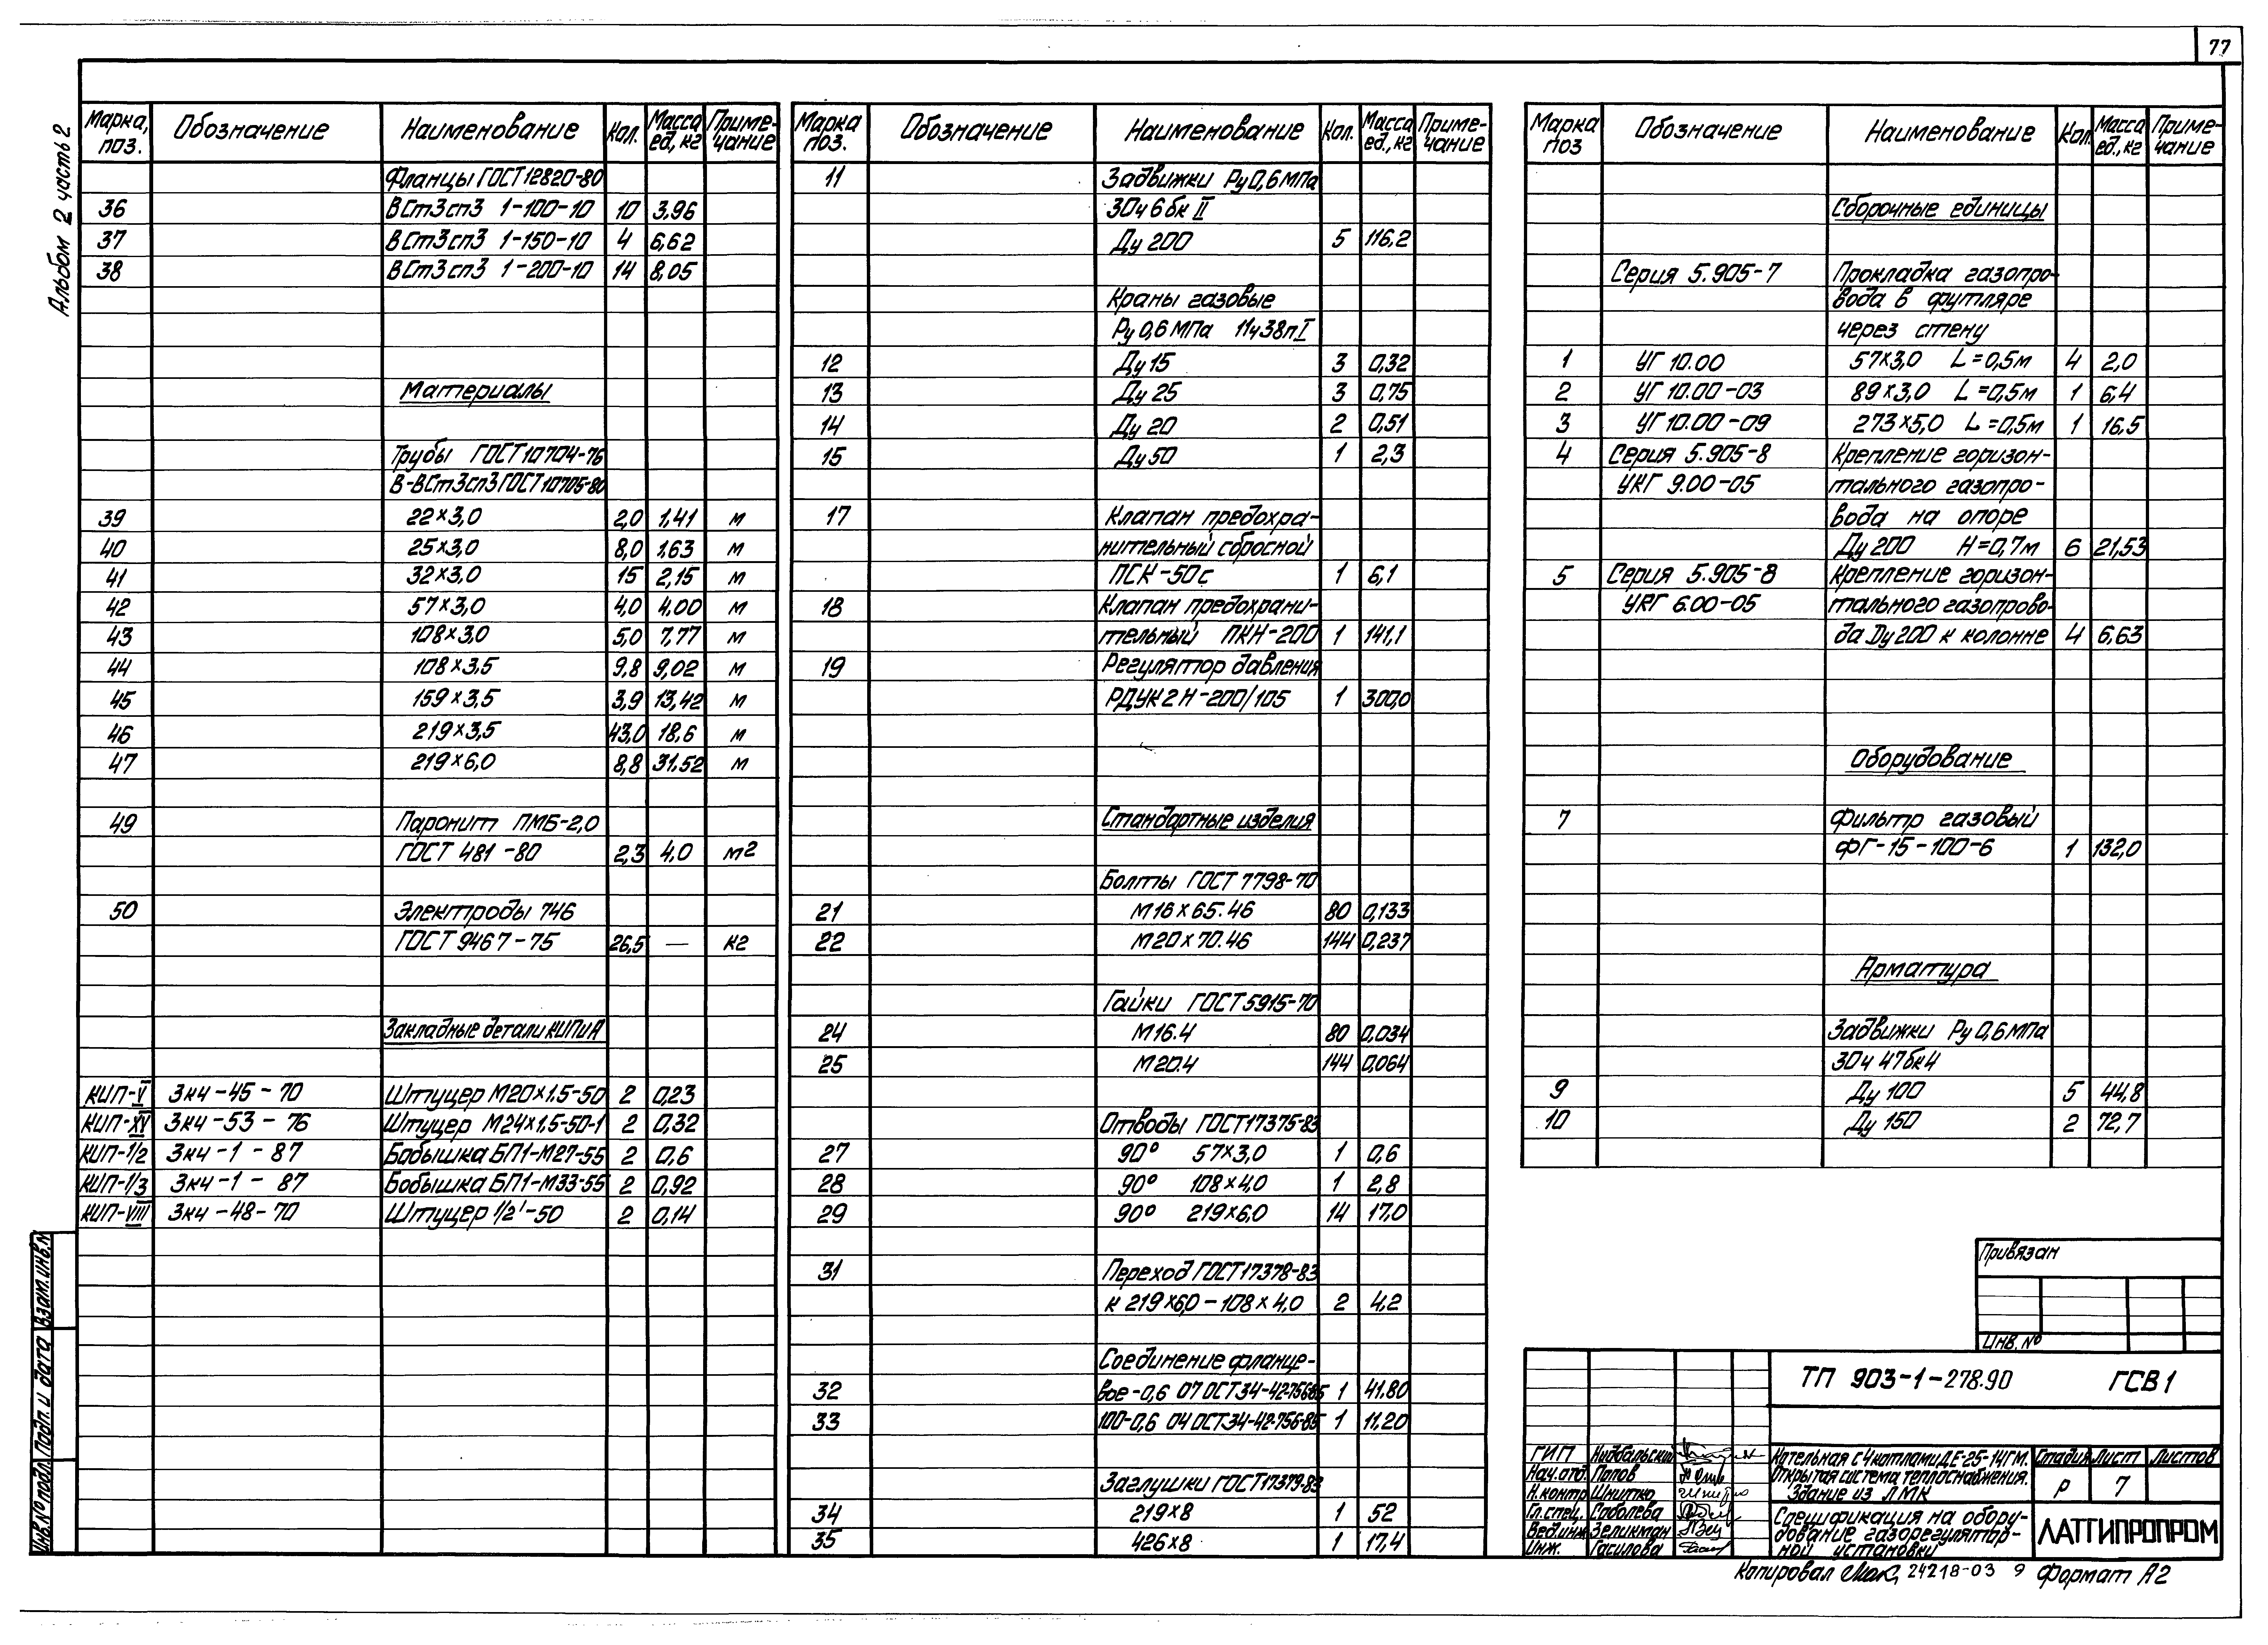 77
Альбом 2 часть 2
Марка, поз. Обозначение Наименование Кол. Масса ед, кг Примечание
Фланцы ГОСТ 12820-80
36 ВСт3сп3 1-100-10 10 3,96
37 ВСт3сп3 1-150-10 4 6,62
38 ВСт3сп3 1-200-10 14 8,05
Материалы
Трубы ГОСТ 10704-76
В-ВСт3сп3 ГОСТ 10705-80
39 22×3,0 2,0 1,41 м
40 25×3,0 8,0 1,63 м
41 32×3,0 15 2,15 м
42 57×3,0 4,0 4,00 м
43 108×3,0 5,0 7,77 м
44 108×3,5 9,8 9,02 м
45 159×3,5 3,9 13,42 м
46 219×3,5 43,0 18,6 м
47 219×6,0 8,8 31,52 м
49 Паронит ПМБ-2,0
ГОСТ 481-80 2,3 4,0 м2
50 Электроды Э46
ГОСТ 9467-75 26,5 — кг
Закладные детали КИПиА
КИП-V ЗКЧ-45-70 Штуцер М20×1,5-50 2 0,23
КИП-XV ЗКЧ-53-76 Штуцер М24×1,5-50-1 2 0,32
КИП-1/2 ЗКЧ-1-87 Бобышка БП1-М27-55 2 0,6
КИП-1/3 ЗКЧ-1-87 Бобышка БП1-М33-55 2 0,92
КИП-VIII ЗКЧ-48-70 Штуцер 1/2'-50 2 0,14
Марка поз. Обозначение Наименование Кол. Масса ед., кг Примечание
11 Задвижки Ру 0,6 МПа
30ч6бк II
Ду 200 5 116,2
Краны газовые
Ру 0,6 МПа 11ч38п I
12 Ду 15 3 0,32
13 Ду 25 3 0,75
14 Ду 20 2 0,51
15 Ду 50 1 2,3
17 Клапан предохра-
нительный сбросной
ПСК-50с 1 6,1
18 Клапан предохрани-
тельный ПКН-200 1 141,1
19 Регулятор давления
РДУК2Н-200/105 1 300,0
Стандартные изделия
Болты ГОСТ 7798-70
21 М16×65.46 80 0,133
22 М20×70.46 144 0,237
Гайки ГОСТ 5915-70
24 М16.4 80 0,034
25 М20.4 144 0,064
Отводы ГОСТ 17375-83
27 90° 57×3,0 1 0,6
28 90° 108×4,0 1 2,8
29 90° 219×6,0 14 17,0
31 Переход ГОСТ 17378-83
К 219×6,0-108×4,0 2 4,2
Соединение фланце-
32 вое-0,6 07 ОСТ 34-42-756-85 1 41.80
33 100-0,6 04 ОСТ 34-42-756-85 1 11.20
Заглушки ГОСТ 17379-83
34 219×8 1 52
35 426×8 1 17,4
Марка поз Обозначение Наименование Кол. Масса ед., кг Примечание
Сборочные единицы
Серия 5.905-7 Прокладка газопро-
вода в футляре
через стену
1 УГ 10.00 57×3,0 L=0,5м 4 2,0
2 УГ 10.00-03 89×3,0 L=0,5м 1 6,4
3 УГ 10.00-09 273×5,0 L=0,5м 1 16,5
4 Серия 5.905-8 Крепление горизон-
УКГ 9.00-05 тального газопро-
вода на опоре
Ду 200 H=0,7м 6 21,53
5 Серия 5.905-8 Крепление горизон-
УКГ 6.00-05 тального газопрово-
да Ду 200 к колонне 4 6,63
Оборудование
7 Фильтр газовый
ФГ-15-100-6 1 132,0
Арматура
Задвижки Ру 0,6 МПа
30ч47бк4
9 Ду 100 5 44,8
10 Ду 150 2 72,7
Привязан
Инв. №
ТП 903-1-278.90 ГСВ1
ГИП Нидбальский
Нач.отд. Попов
Н.контр Шнитко
Гл.спец. Соболева
Вед.инж Зеликман
Инж. Гасилова
Котельная с 4 котлами ДЕ-25-14ГМ.
Открытая система теплоснабжения.
Здание из ЛМК
Стадия Лист Листов
Р 7
Спецификация на обору-
дование газорегулятор-
ной установки
ЛАТГИПРОПРОМ
Копировал 24218-03 9 Формат А2
Инв.№ подл. Подп. и дата Взам.инв.№